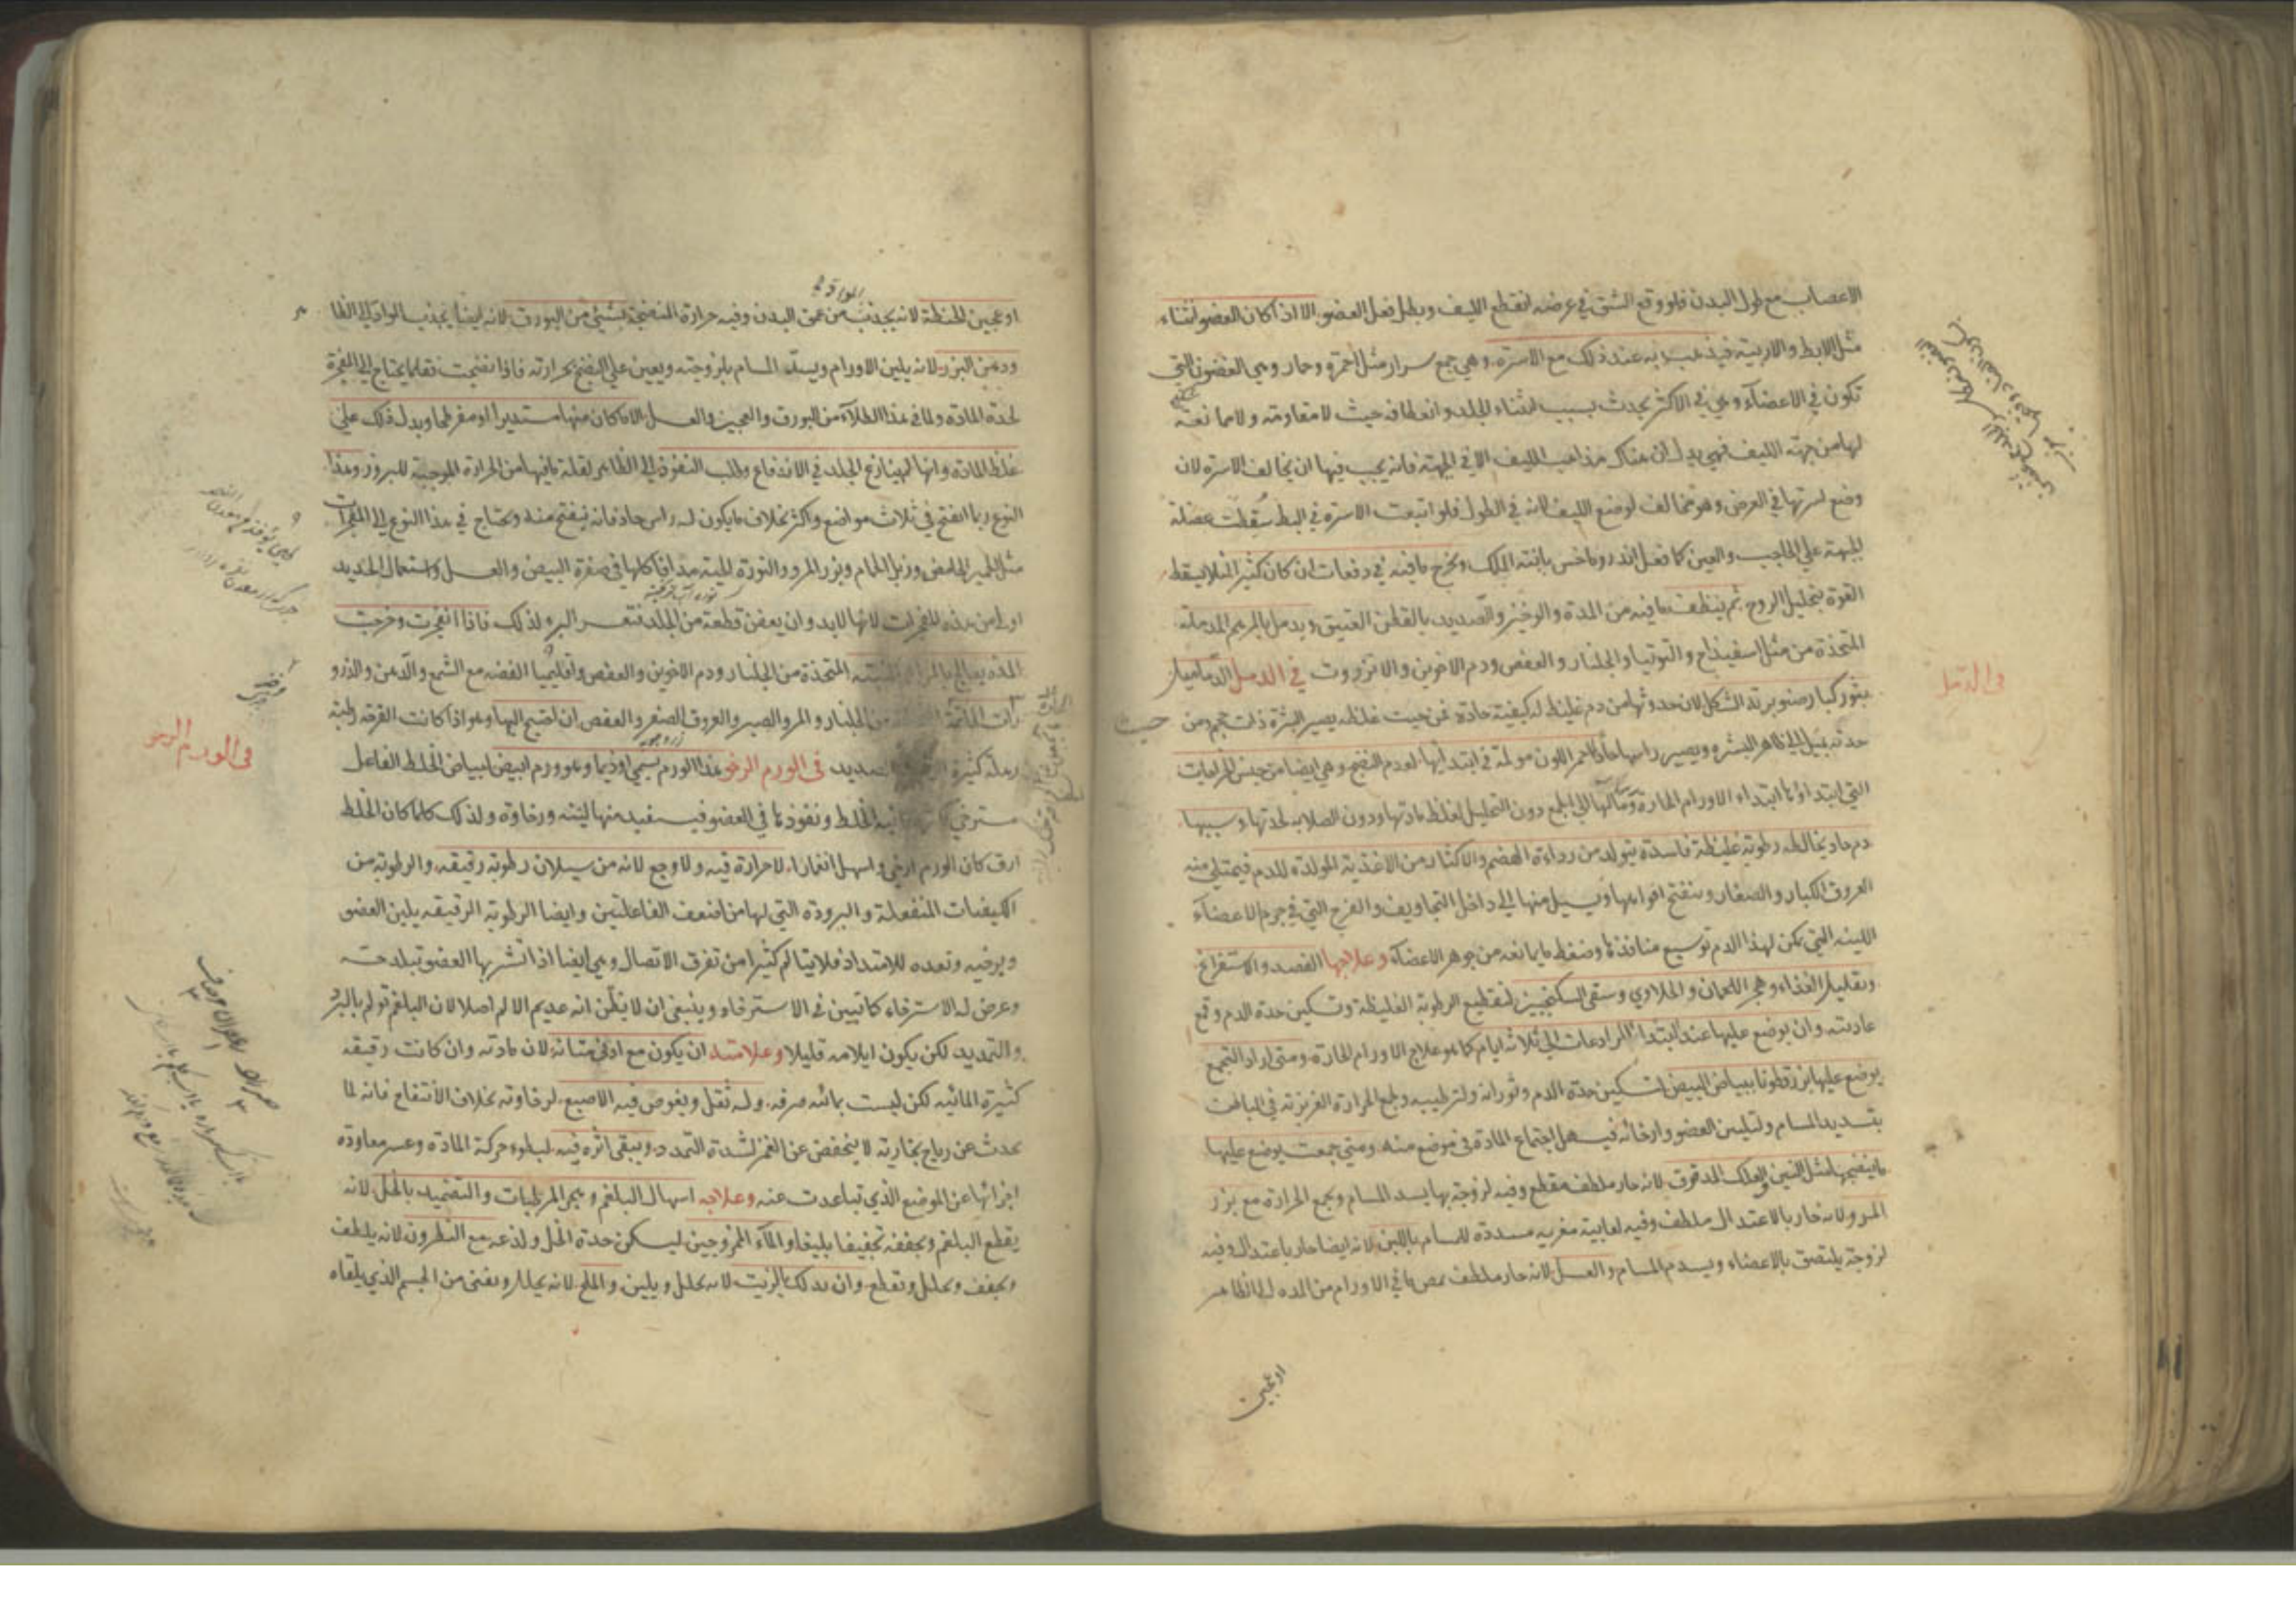 الاعصاب مع طول البدن فلو وقع الشق في عرضه انقطع الليف وبطل فعل العضو الا اذا كان العضو انثناء
مثل الابط والاربية فيذهب به عند ذلك مع الاسرة وهي جمع سرار مثل احمرة وحمار وهي الغضون التي
تكون في الاعضآء وهي في الاكثر يحدث بسبب انثناء الجلد وانعطافه حيث لا مقاومة ولا ممانعة
لها من جهة الليف فهي يدل ان هناك مذاهب الليف الا في الجبهة فانه يجب فيها ان يخالف الاسرة لان
وضع اسرتها في العرض وهو مخالف لوضع الليف لانه في الطول فلو اتبعت الاسرة في البط سقطت عضلة
الجبهة علي الحاجب والعين كما فعل اندروماخس بابنة الملك ويخرج ما فيه في دفعات ان كان كثيرا لئلا يسقط
القوة بتحليل الروح ثم ينظف ما فيه من المدة والوخز والصديد بالقطن العتيق ويدمل بالمراهم المدملة
المتخذة من مثل اسفيذاج والتوتيا والجلنار والعفص ودم الاخوين والانزروت في الدمل الدماميل
بثور كبار صنوبرية الشكل لان حدوثها من دم غليظ له كيفية حادة فمن حيث غلظه يصير البثرة ذات حجم ومن حيث
حدته يميل الي ظاهر البشرة ويصير راسها حادا احمر اللون مولمة في ابتدائها لعدم النضج وهي ايضا من جنس الخراجات
التي ابتداؤها ابتداء الاورام الحارة ومآلها الي الجمع دون التحليل لغلظ مادتها ودون الصلابة لحدتها وسببها
دم حاد يخالطه رطوبة غليظة فاسدة يتولد من رداءة الهضم والاكثار من الاغذية المولدة للدم فيمتلي منه
العروق الكبار والصغار وينفتح افواهها ويسيل منها الي داخل التجاويف والفرج التي في جرم الاعضآء
اللينة التي يمكن لهذا الدم توسيع منافذها وضغط ما يمانعه من جوهر الاعضآء وعلاجها الفصد والاستفراغ
وتقليل الغذاء وهجر اللحمان والحلاوي وسقي السكنجبين لتقطيع الرطوبة الغليظة وتسكين حدة الدم وقمع
عاديته وان يوضع عليها عند ابتدا الرادعات الي ثلاثة ايام كما هو علاج الاورام الحارة ومتى اراد التجمع
يوضع عليها بزرقطونا ببياض البيض لتسكين حدة الدم وثورانه ولترطيبه وجمع الحرارة الغريزية في الباطن
بتسديد المسام ولتليين العضو وارخائه فيسهل اجتماع المادة في موضع منه ومتى جمعت يوضع عليها
ما ينضجها مثل التين والعلك المدقوق لانه حار ملطف مقطع وفيه لزوجة بها يسد المسام ويجمع الحرارة مع بزر
المرو لانه حار بالاعتدال ملطف وفيه لعابية مغرية مسددة للمسام باللبن لانه ايضا حار باعتدال وفيه
لزوجة يلتصق بالاعضاء ويسد المسام والعسل لانه حار ملطف يمص ما في الاورام من المده الي الظاهر
اوعجين
في الدمل
اوعجين الحنطة لانه يجذب من عمق البدن وفيه حرارة المنضجة بشيئ من البورق لانه ايضا يجذب المواد الي الظا
ودهن البزر لانه يلين الاورام ويسد المسام بلزوجته ويعين علي النضج بحرارته فاذا نضجت فقلما يحتاج الي المفجرة
لحدة المادة ولما في هذا الطلآء من البورق والعجين والعسل الا ما كان منها مستديرا او مفرطحا ويدل ذلك علي
غلظ المادة وانها لم ينازع الجلد في الاندفاع وطلب النفوذ الي الظاهر لقلة ما فيها من الحرارة الموجبة للبروز وهذا
النوع ربما انفتح في ثلاث مواضع واكثر بخلاف ما يكون له راس حاد فانه ينفتح منه ويحتاج في هذا النوع الي المفجرات
مثل الخمير الحامض وزبل الحمام وبزر المرو والنورة الحية مدافا كلها في صفرة البيض والعسل واستعمال الحديد
اولي من هذه المفجرات لانها لابد وان يعفن قطعة من الجلد فتعسر البرء لذلك فاذا انفجرت وخرجت
المدة يعالج بالمراهم المتخذة من الجلنار ودم الاخوين والعفص واقليميا الفضه مع الشمع والدهن والذرو
رات من الجلنار والمر والصبر والعروق الصفر والعفص ان احتيج اليها وهو اذا كانت القرحة رطبة
رهلة كثيرة الصديد في الورم الرخو هذا الورم يسمي اوذيما وهو ورم ابيض لبياض الخلط الفاعل
مسترخي الخلط ونفوذها في العضو فيستفيد منها لينة ورخاوة ولذلك كلما كان الخلط
ارق كان الورم ارخي واسهل انغمازا لا حرارة فيه ولا وجع لانه من سيلان رطوبة رقيقة والرطوبة من
الكيفيات المنفعلة والبرودة التي لها من اضعف الفاعلتين وايضا الرطوبة الرقيقة يلين العضو
ويرخيه وتعده للامتداد فلا يتالم كثيرا من تفرق الاتصال وهي ايضا اذا تشربها العضو تبلد حسه
وعرض له الاسترخاء كما تبين في الاسترخاء وينبغي ان لا يظن انه عديم الالم اصلا لان البلغم تولم بالبرد
والتمديد لكن يكون ايلامه قليلا وعلامته ان يكون مع ادني متانة لان مادته وان كانت رقيقة
كثيرة المائية لكن ليست بمائية صرفة وله ثقل ويغوص فيه الاصبع لرخاوته بخلاف الانتفاخ فانه لما
يحدث عن رياح بخارية لا ينخفض عن الغمز لشدة التمدد ويبقي اثره فيه لبطوء حركة المادة وعسر معاودة
اجزائها عن الموضع الذي تباعدت عنه وعلاجه اسهال البلغم وهجر المرطبات والتضميد بالخل لانه
يقطع البلغم ويجففه تجفيفا بليغا والمآء الممزوجين ليسكن حدة الخل ولذعه مع النطرون لانه يلطف
ويجفف ويحلل ويقطع وان يدلك بالزيت لانه يحلل ويلين والملح لانه يحلل ويفني من الجسم الذي يلقاه
في الورم الرخو